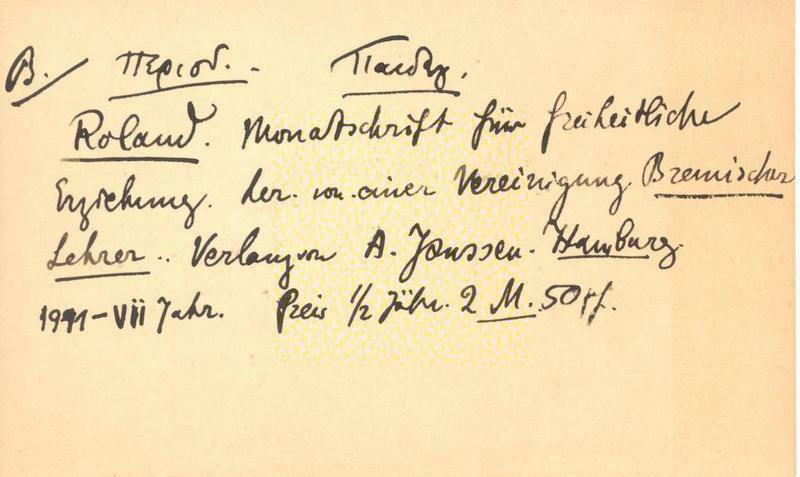 B./ Περιοδ. - Παιδαγ.
Roland. Monatschrift für freiheitliche
Erziehung. her. von einer Vereinigung Bremischer
Lehrer.. Verlag von A. Janssen. Hamburg.
1911-VII Jahr. Preis 1/2 Jähr. 2 M. 50 Pf.